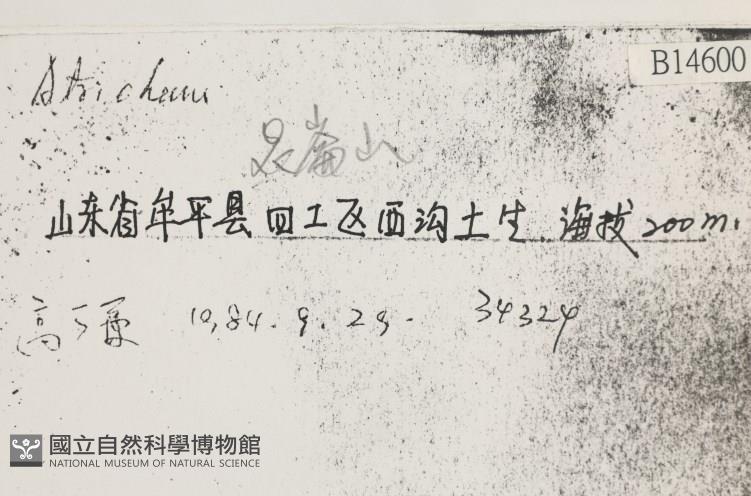 B14600
Atrichum
昆嵛山
山东省牟平县四工区西沟土生.海拔200m.
高 1984.9.29. 34324
國立自然科學博物館
NATIONAL MUSEUM OF NATURAL SCIENCE